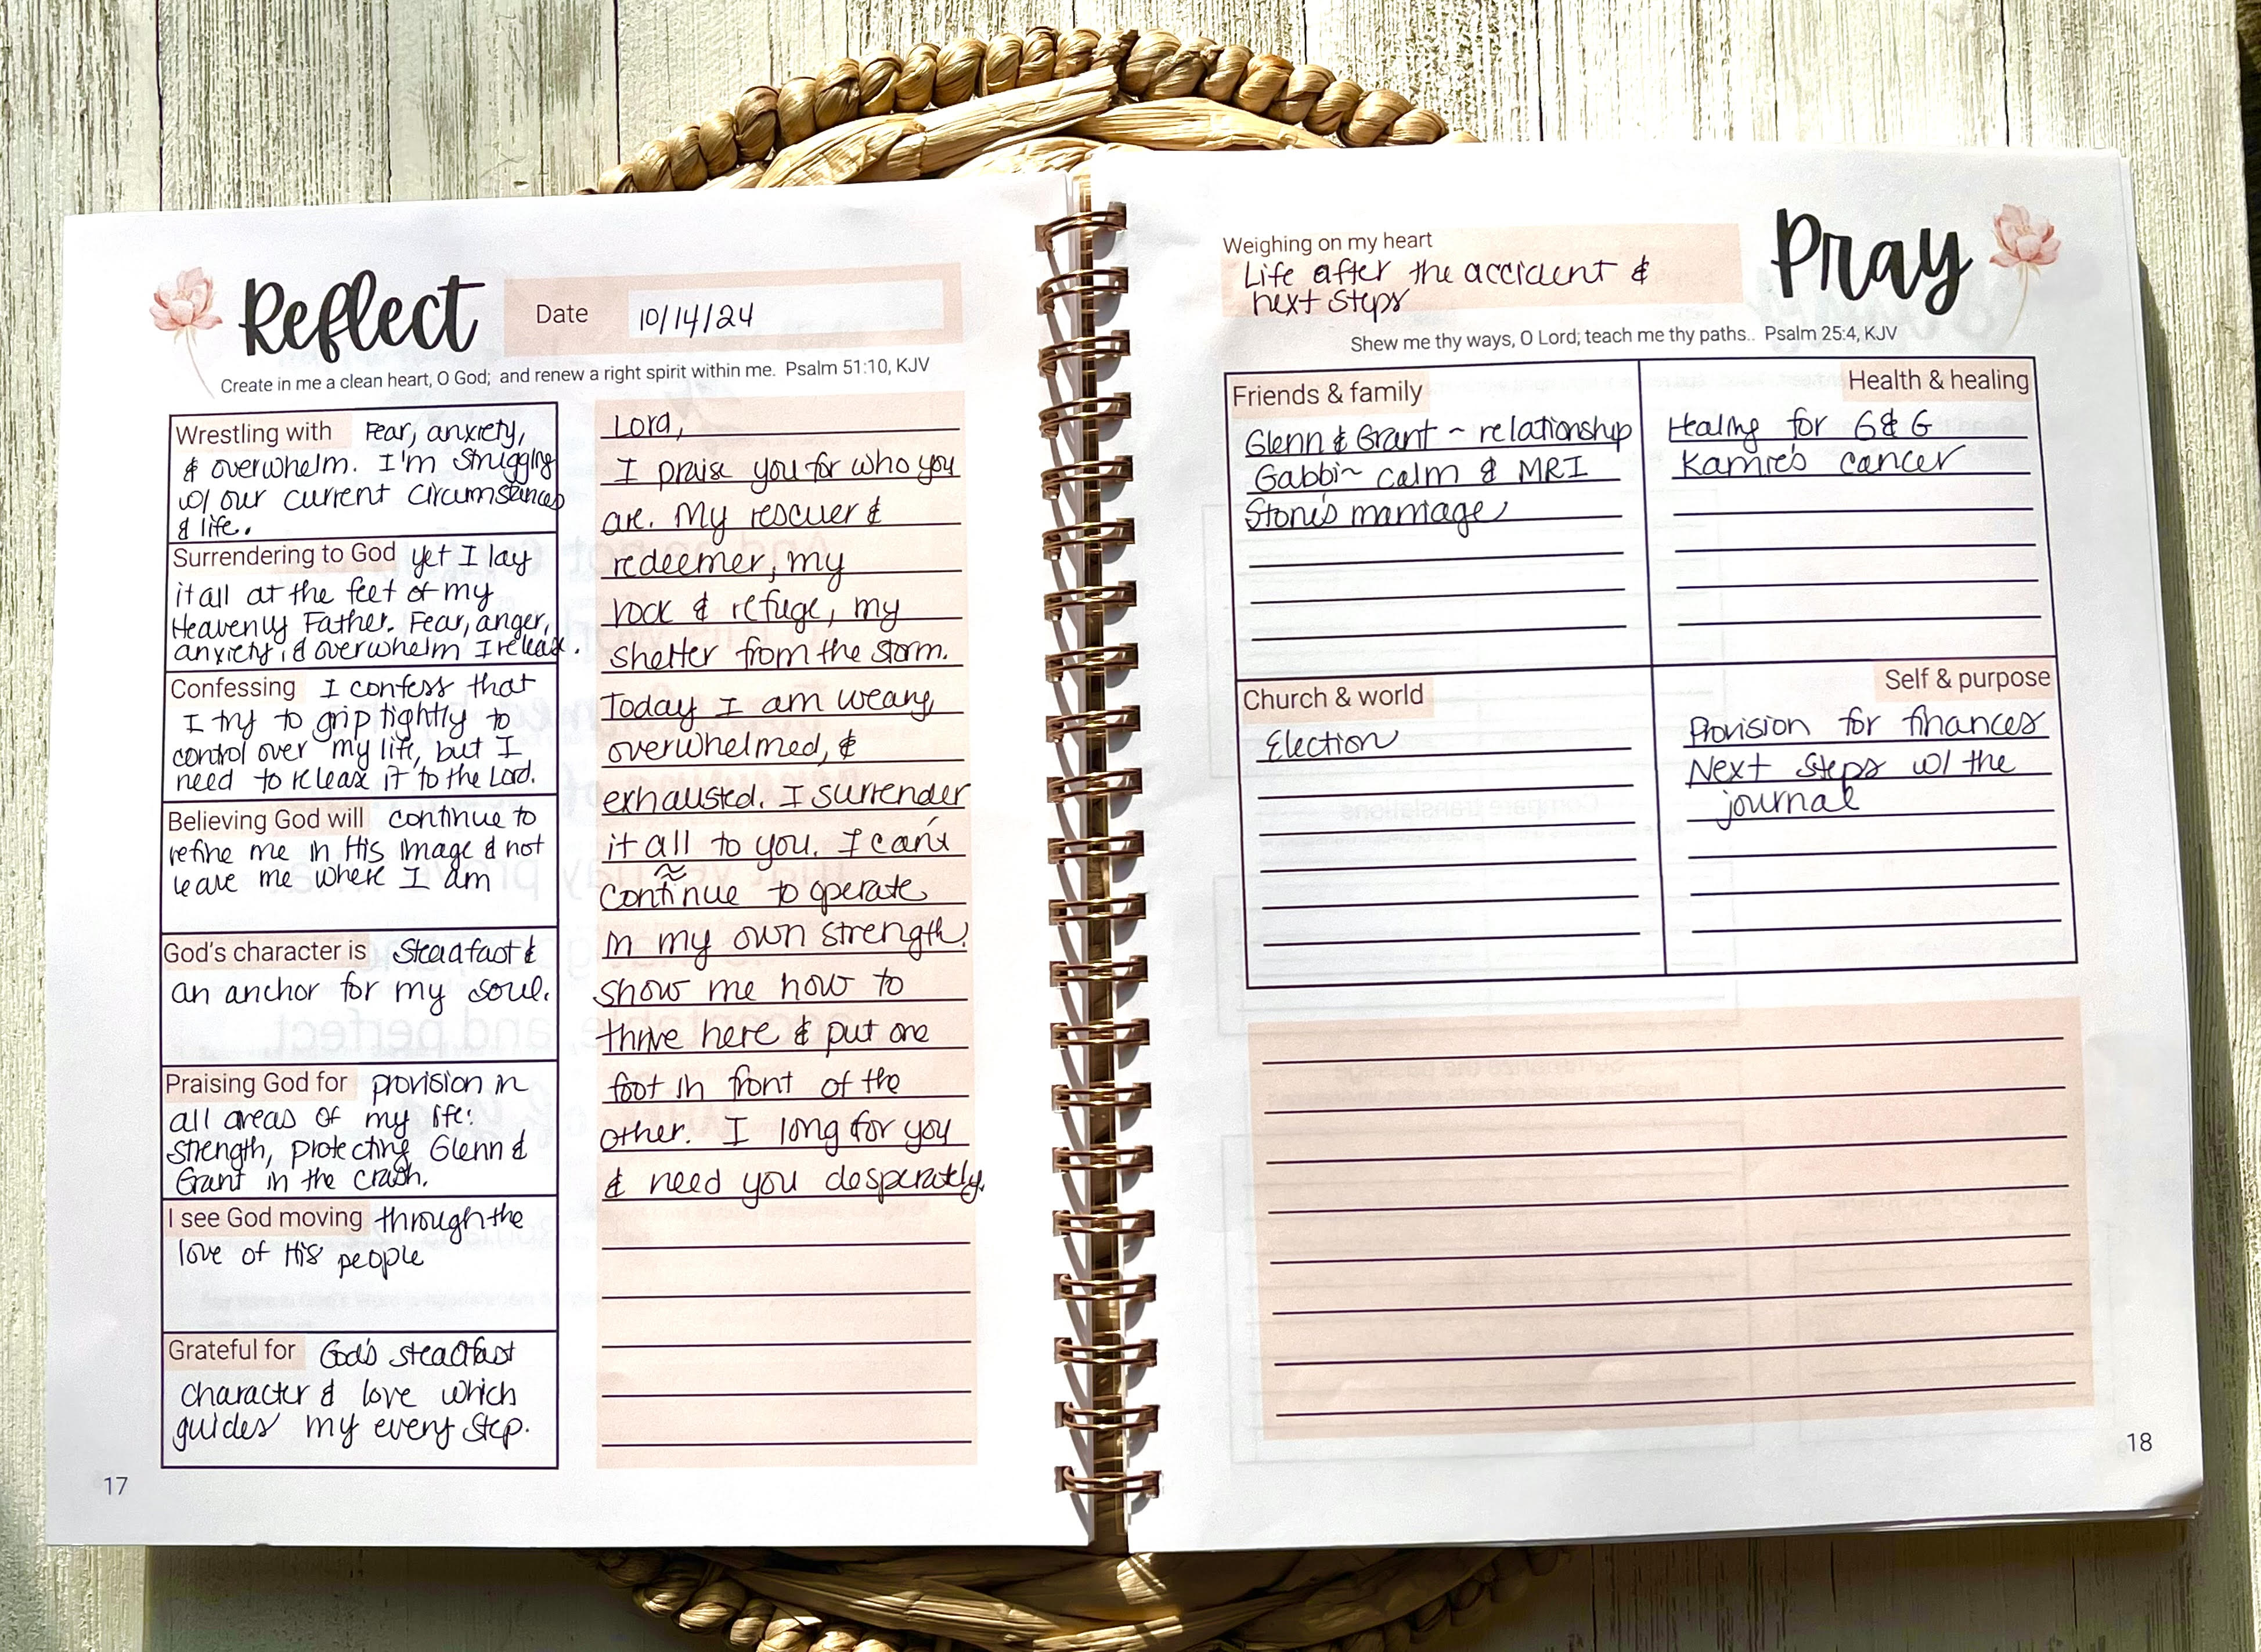 Reflect
Date 10/14/24
Create in me a clean heart, O God; and renew a right spirit within me. Psalm 51:10, KJV
Wrestling with Fear, anxiety,
& overwhelm. I'm struggling
w/ our current circumstances
& life..
Surrendering to God yet I lay
it all at the feet of my
Heavenly Father. Fear, anger,
anxiety, & overwhelm I release.
Confessing I confess that
I try to grip tightly to
control over my life, but I
need to release it to the Lord.
Believing God will continue to
refine me in His image & not
leave me where I am
God's character is Steadfast &
an anchor for my soul.
Praising God for provision in
all areas of my life:
strength, protecting Glenn &
Grant in the crash.
I see God moving through the
love of His people
Grateful for God's steadfast
character & love which
guides my every step.
Lord,
I praise you for who you
are. My rescuer &
redeemer, my
rock & refuge, my
shelter from the storm.
Today I am weary,
overwhelmed, &
exhausted. I surrender
it all to you. I can't
continue to operate
in my own strength.
show me how to
thrive here & put one
foot in front of the
other. I long for you
& need you desperately.
17
Weighing on my heart
Life after the accident &
next steps
Pray
Shew me thy ways, O Lord; teach me thy paths.. Psalm 25:4, KJV
Friends & family
Glenn & Grant ~ relationship
Gabbi ~ calm & MRI
Stone's marriage
Health & healing
Healing for G & G
Kamie's cancer
Church & world
Election
Self & purpose
Provision for finances
Next steps w/ the
journal
18